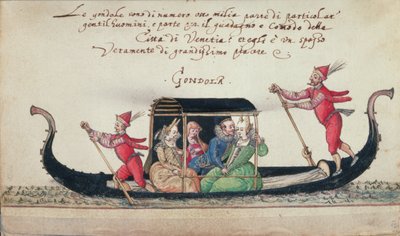 Le gondole sono di numero otto milia parte di particolar
gentil'huomini, e parte per il guadagno e Comodo della
Città di Venetia: et egli è un spasso
Veramente di grandissimo piacere
GONDOLA.